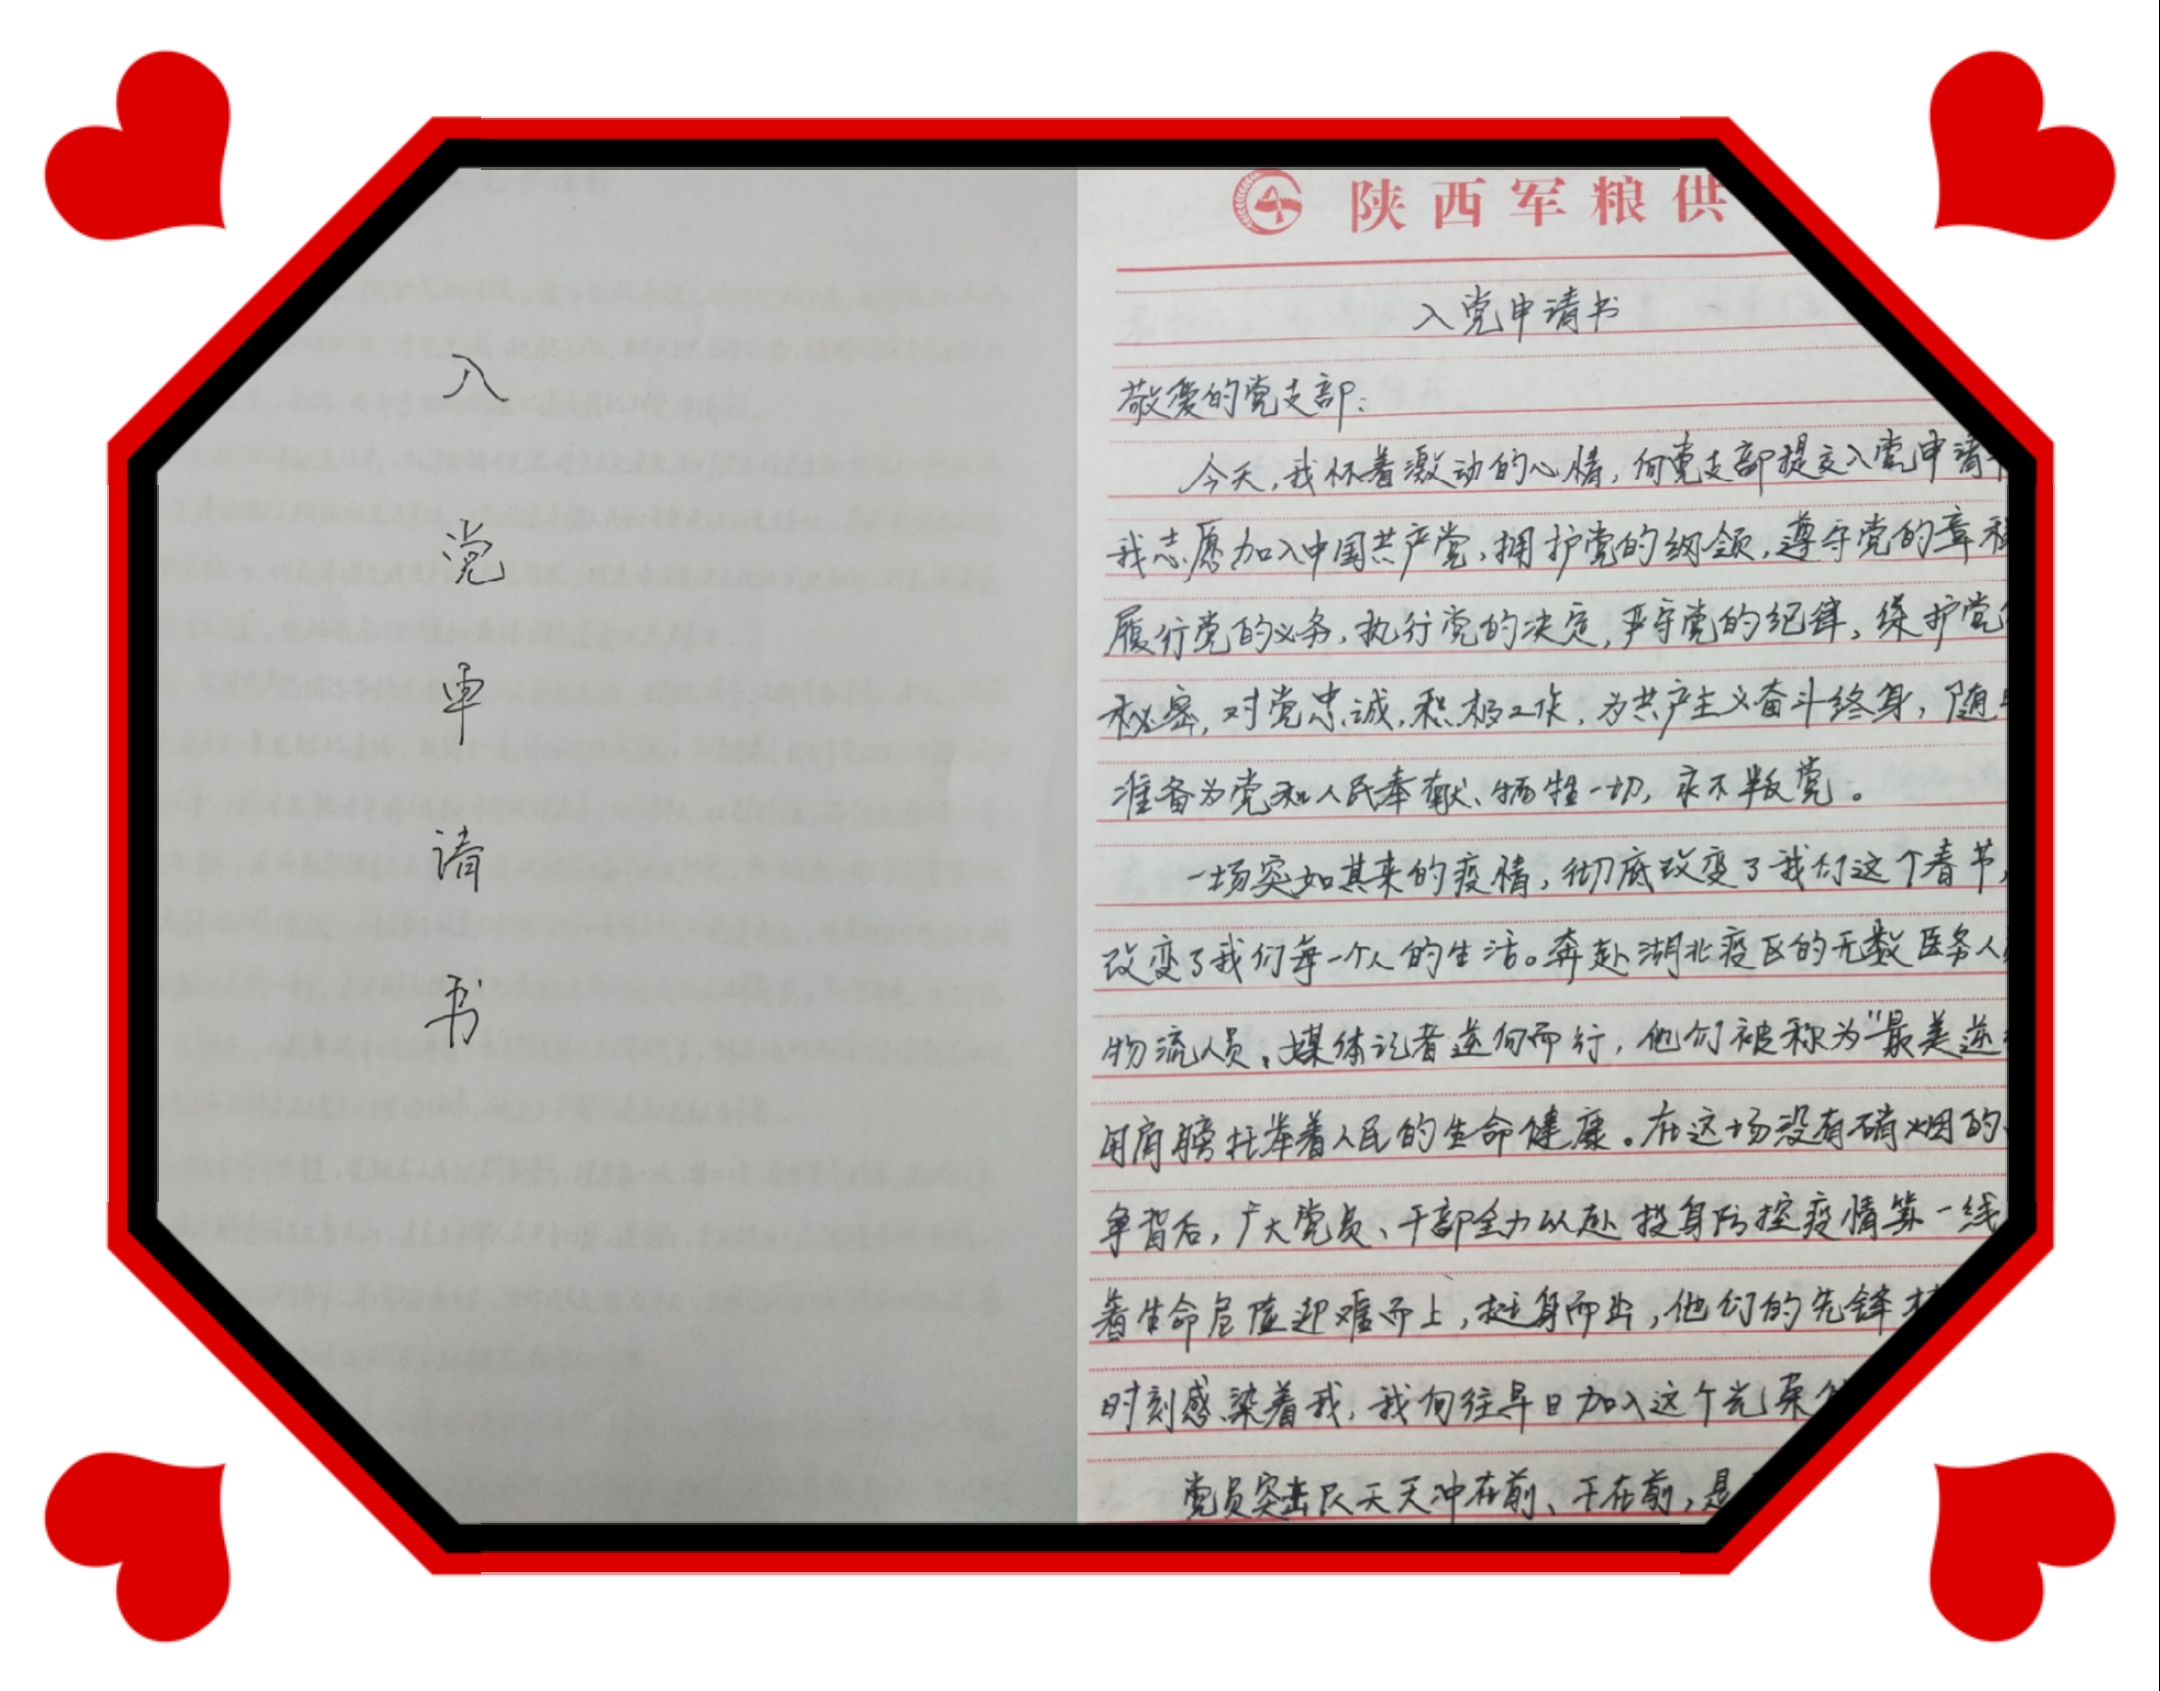 入
党
申
请
书
陕西军粮供
入党申请书
敬爱的党支部：
今天，我怀着激动的心情，向党支部提交入党申请
我志愿加入中国共产党，拥护党的纲领，遵守党的章程
履行党的义务，执行党的决定，严守党的纪律，保护党的
秘密，对党忠诚，积极工作，为共产主义奋斗终身，随
准备为党和人民奉献、牺牲一切，永不叛党。
一场突如其来的疫情，彻底改变了我们这个春节，
改变了我们每一个人的生活。奔赴湖北疫区的无数医务人员
物流人员、媒体记者逆向而行，他们被称为“最美逆
用肩膀托举着人民的生命健康。在这场没有硝烟的
争背后，广大党员、干部全力以赴投身防控疫情第一线
着生命危险迎难而上，挺身而出，他们的先锋
时刻感染着我，我向往早日加入这个光荣
党员突击队天天冲在前、干在前，是